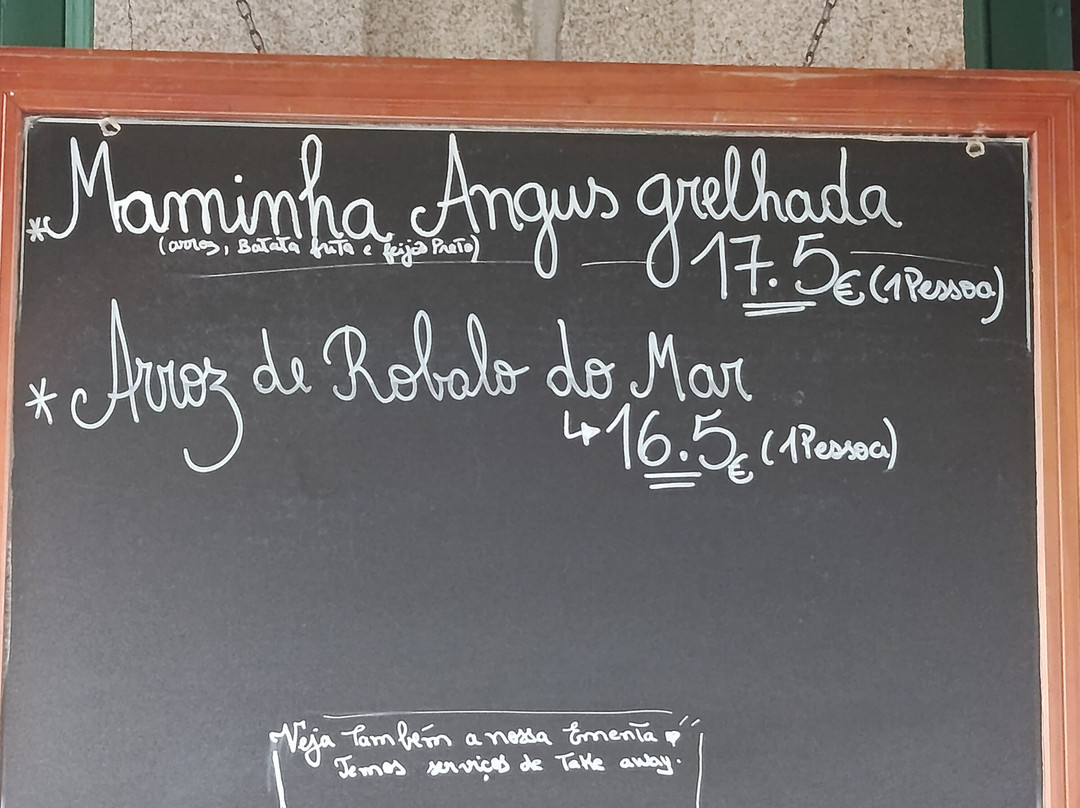 * Maminha Angus grelhada
(arroz, Batata frita e feijão Preto)
17.5€ (1 Pessoa)
* Arroz de Robalo do Mar
↳ 16.5€ (1 Pessoa)
Veja Também a nossa Ementa
Temos serviços de Take away.